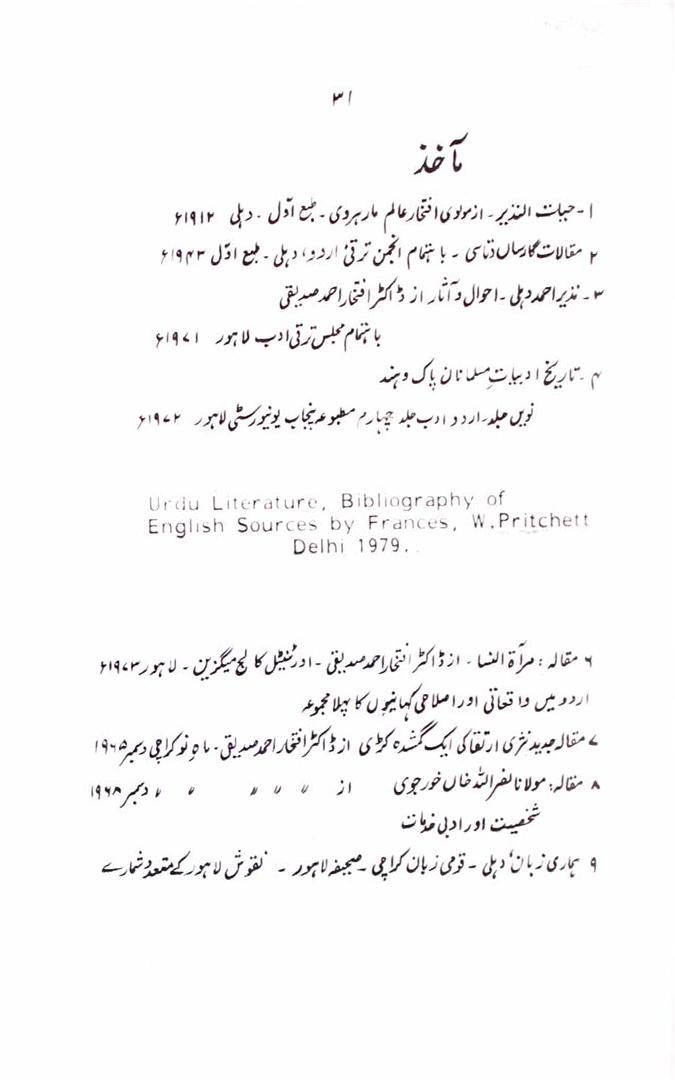 ۳۱
مآخذ
۱- حیات النذیر - از مولوی افتخار عالم مارہروی - طبع اوّل - دہلی ۱۹۱۲ء
۲ مقالات گارساں دتاسی - باہتمام انجمن ترقیٔ اردو، دہلی - طبع اوّل ۱۹۴۳ء
۳ - نذیر احمد دہلی - احوال و آثار از ڈاکٹر افتخار احمد صدیقی
باہتمام مجلس ترقی ادب لاہور ۱۹۷۱ء
۴ - تاریخ ادبیاتِ مسلمانان پاک و ہند
نویں جلد - اردو ادب جلد چہارم مطبوعہ پنجاب یونیورسٹی لاہور ۱۹۷۲ء
Urdu Literature, Bibliography of
English Sources by Frances, W.Pritchett
Delhi 1979.
۶ مقالہ : مرآة النسا - از ڈاکٹر افتخار احمد صدیقی - اورنٹیل کالج میگزین - لاہور ۱۹۷۳ء
اردو میں واقعاتی اور اصلاحی کہانیوں کا پہلا مجموعہ
۷ مقالہ جدید نثری ارتقا کی ایک گمشدہ کڑی از ڈاکٹر افتخار احمد صدیقی - ماہِ نو کراچی دسمبر ۱۹۶۵
۸ مقالہ : مولانا نصر اللہ خاں خورجوی از 〃 〃 〃 〃 〃 〃 دسمبر ۱۹۶۸
شخصیت اور ادبی خدمات
۹ ہماری زبان، دہلی - قومی زبان کراچی - صحیفہ لاہور - نقوش لاہور کے متعدد شمارے